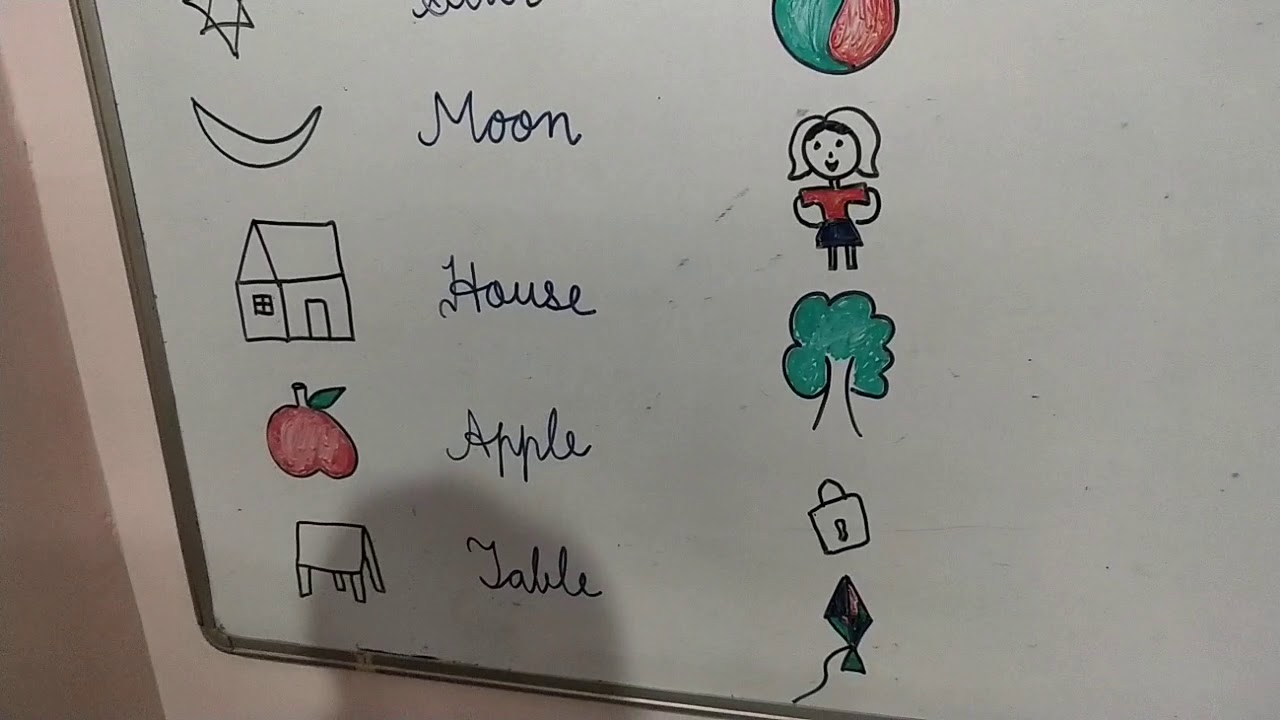 Moon
House
Apple
Table